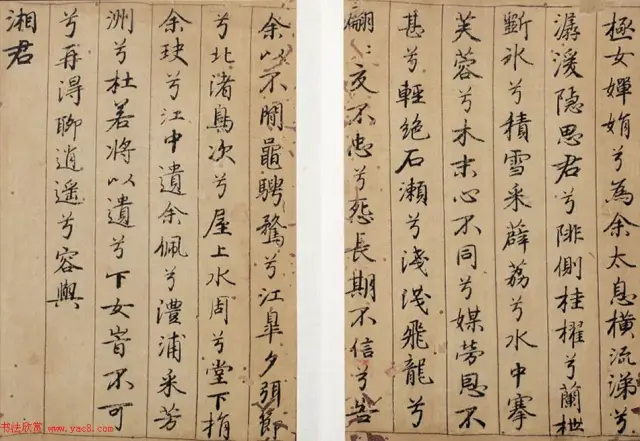 極女嬋娟兮為余太息橫流涕兮
潺湲隱思君兮陫側桂櫂兮蘭枻
斲冰兮積雪采薜荔兮水中搴
芙蓉兮木末心不同兮媒勞恩不
甚兮輕絕石瀨兮淺淺飛龍兮
翩〻交不忠兮怨長期不信兮告
余以不閒鼂騁騖兮江皐夕弭節
兮北渚鳥次兮屋上水周兮堂下捐
余玦兮江中遺余佩兮澧浦采芳
洲兮杜若將以遺兮下女旹不可
兮再得聊逍遥兮容與
湘君
书法欣赏 www.yac8.com